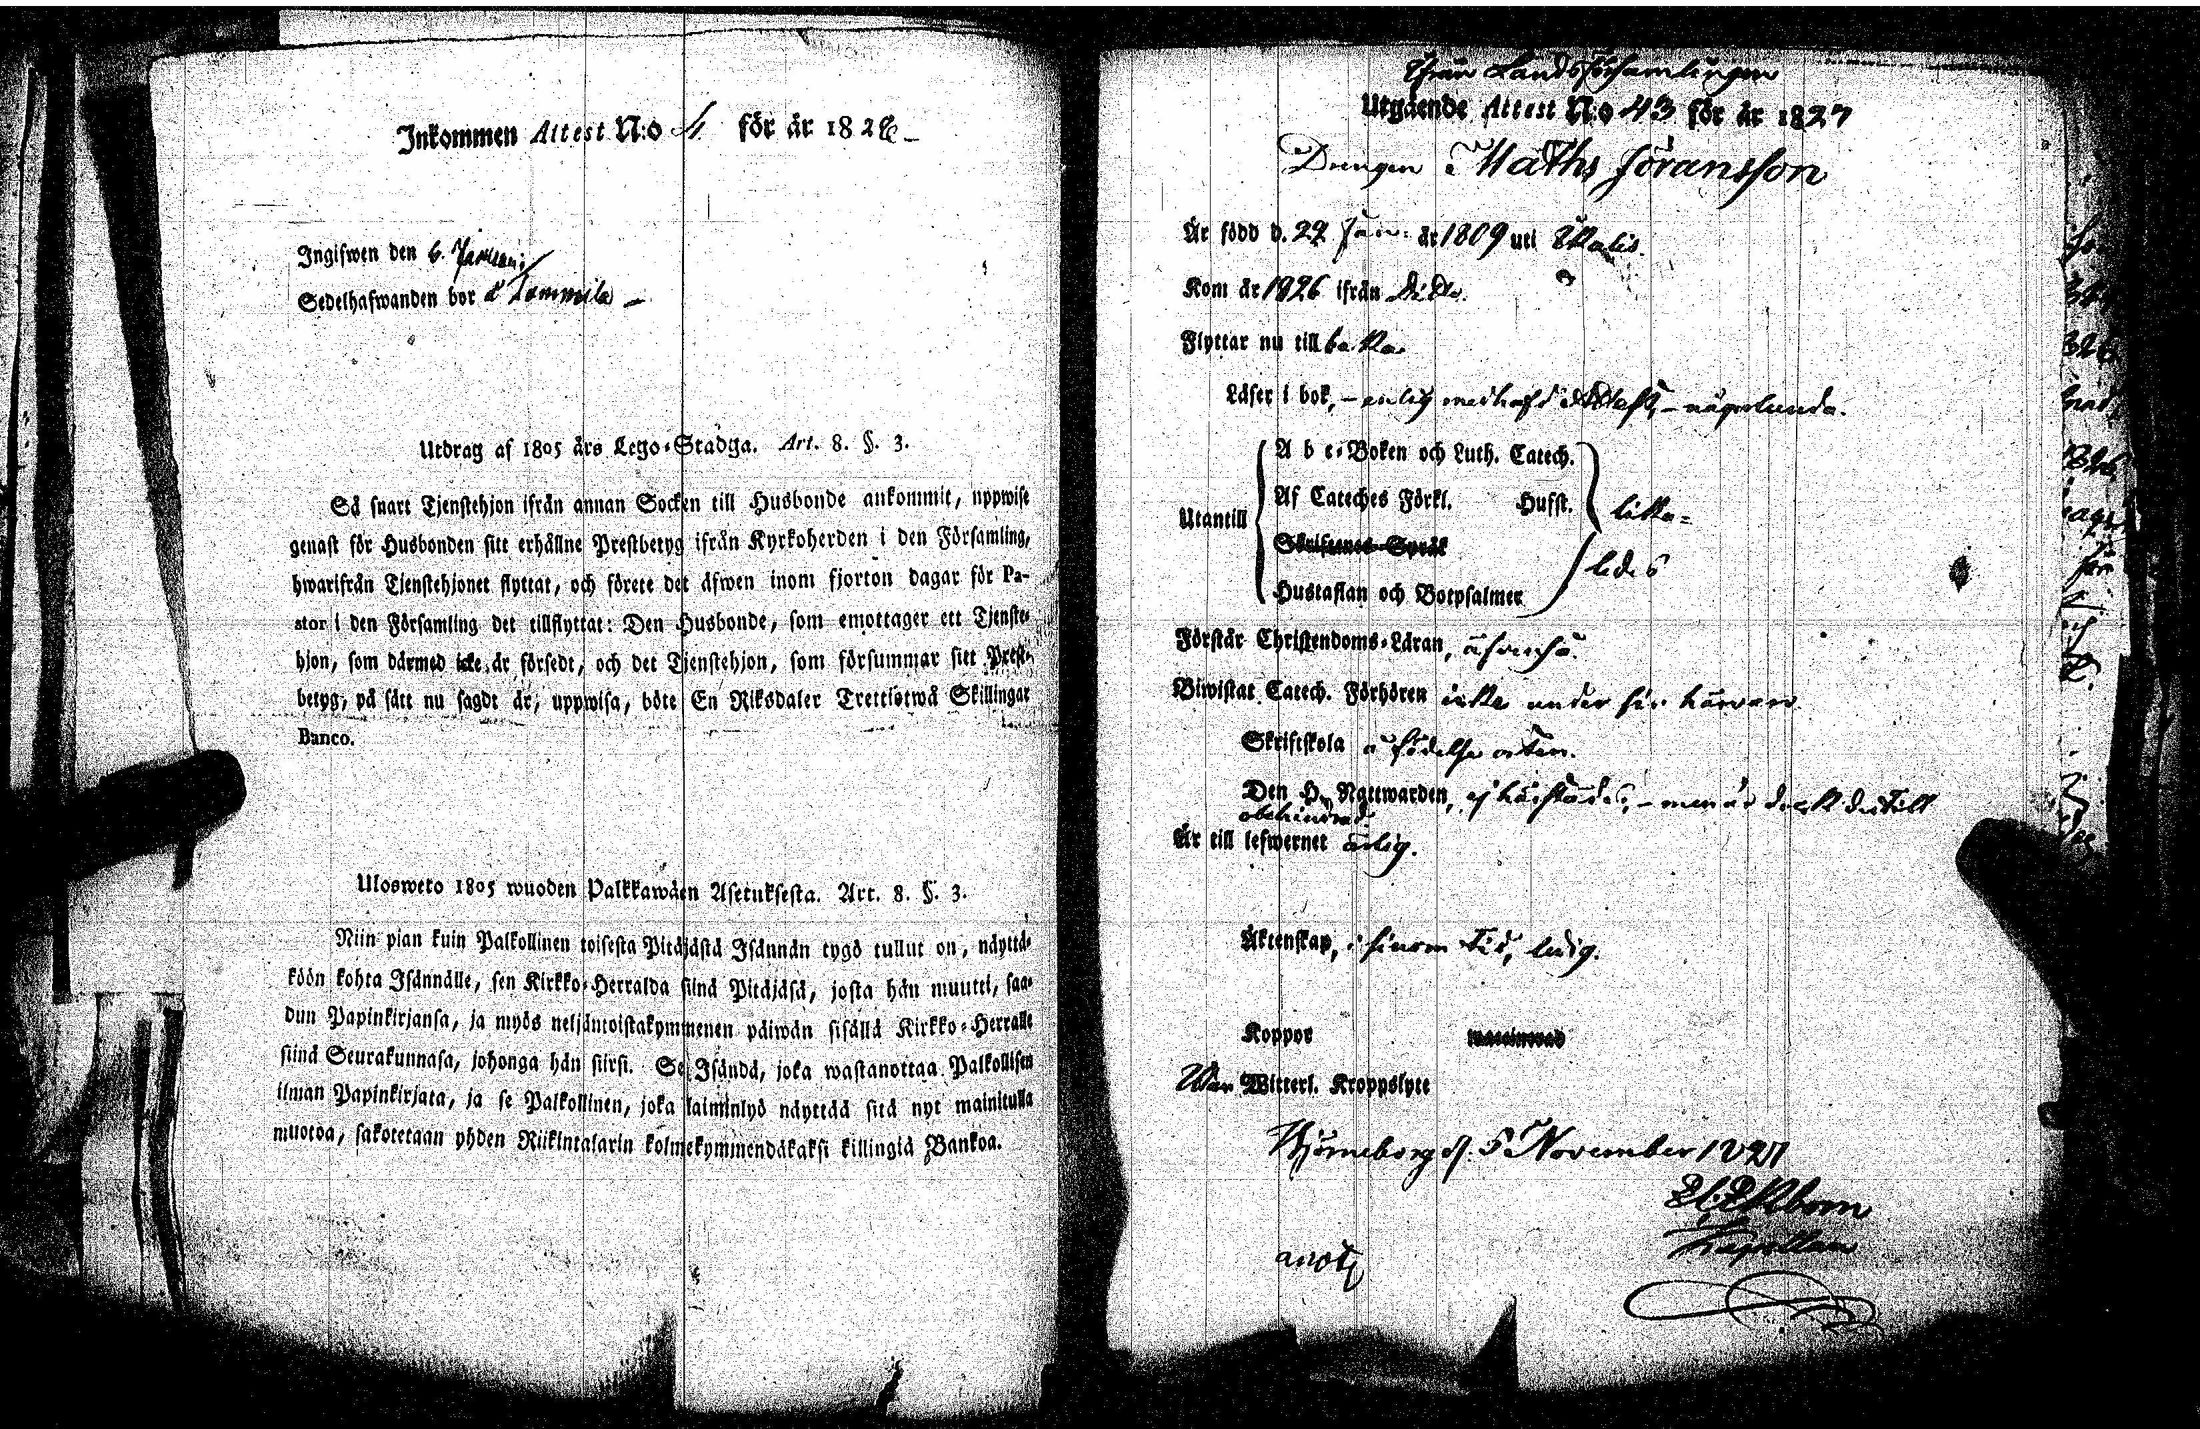 Inkommen Attest N:o 4. för år 1828
Ingifwen den 6. Januari
Sedelhafwanden bor å Tommila
Utdrag af 1805 års Lego-Stadga. Art. 8. §. 3.
Så snart Tjenstehjon ifrån annan Socken till Husbonde ankommit, uppwise
genast för Husbonden sitt erhållne Prestbetyg ifrån Kyrkoherden i den Församling,
hwarifrån Tjenstehjonet flyttat, och förete det äfwen inom fjorton dagar för Pa-
stor i den Församling det tillflyttat: Den Husbonde, som emottager ett Tjenste-
hjon, som därmed icke är försedt, och det Tjenstehjon, som försummar sitt Prest-
betyg, på sätt nu sagdt är, uppwisa, böte En Riksdaler Trettiotwå Skillingar
Banco.
Ulosweto 1805 wuoden Palkkawäen Asetuksesta. Art. 8. §. 3.
Niin pian kuin Palkollinen toisesta Pitäjästä Isännän tygö tullut on, näyttä-
köön kohta Isännälle, sen Kirkko-Herralda siinä Pitäjäsä, josta hän muutti, saa-
dun Papinkirjansa, ja myös neljäntoistakymmenen päiwän sisällä Kirkko-Herralle
siinä Seurakunnasa, johonga hän siirsi. Se Isändä, joka wastanottaa Palkollisen
ilman Papinkirjata, ja se Palkollinen, joka laiminlyö näyttää sitä nyt mainitulla
muotoa, sakotetaan yhden Riikintalarin kolmekymmendäkaksi killingiä Bankoa.
Ifrån Landsförsamlingen
Utgående Attest N:o 43 för år 1827
Drengen Maths Jöransson
Är född d. 22 Jan. år 1809 uti
Kom år 1826 ifrån dito.
Flyttar nu tillbaka
Läser i bok, – enlig medhafd Attest, – någorlunda.
A b c-Boken och Luth. Catech.
Af Cateches Förkl. Husst.
Utantill
Skriftenes Språk
Hustaflan och Botpsalmer
lika-
ledes
Förstår Christendoms-Läran, äfwenså.
Biwistat Catech. Förhören icke under sin härwaro
Skriftskola å födelse orten.
Den H. Nattwarden, ej härstädes, – men är dock dertill
obehindrad.
Är till lefwernet ärlig.
Äktenskap, i sinom tid, ledig.
Koppor
vaccinerad
Witterl. Kroppslyte
Björneborg d. 5 November 1827
Ekbom
Kapellan
anot.